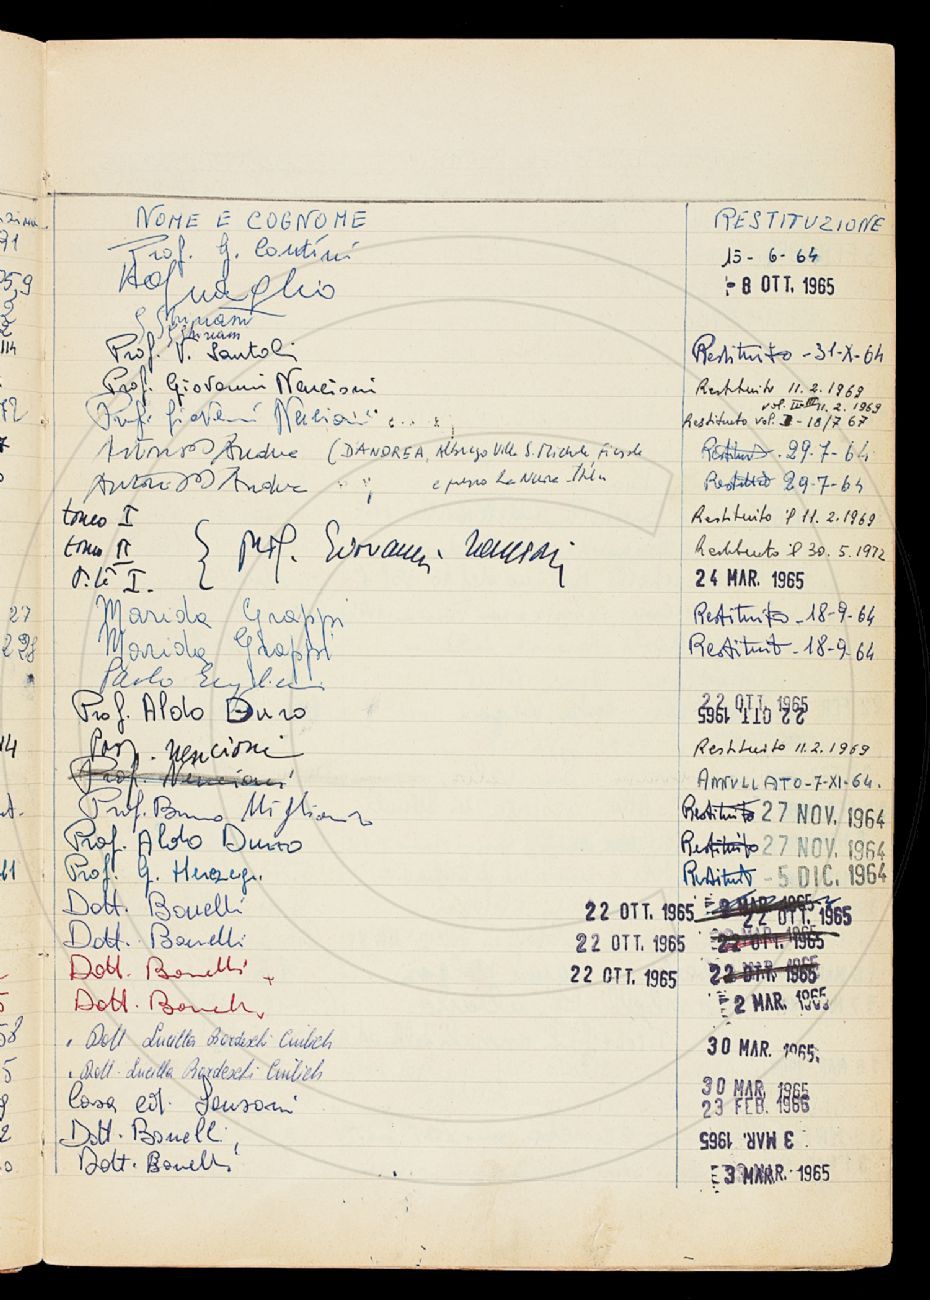 NOME E COGNOME RESTITUZIONE
91
Prof. G. Contini 15-6-64
- 8 OTT. 1965
Prof. V. Santoli Restituito - 31-X-64
114
Prof. Giovanni Nencioni Restituito 11.2.1969
72 Prof. Giovanni Nencioni Restituito vol. I - 18/7 67
vol. 11.2.1969
Antonio D'Andrea (D'ANDREA, Albergo Villa S. Michele Fiesole Restituito - 29-7-64
Antonio D'Andrea " " ; e presso La Nuova Italia Restituito 29-7-64
tomo I Restituito il 11.2.1969
tomo II { Prof. Giovanni Nencioni Restituito il 30.5.1972
I. 24 MAR. 1965
27 Marida Grappi Restituito - 18-9-64
228 Marida Grappi Restituito - 18-9-64
Paolo
Prof. Aldo Duro 22 OTT. 1965
22 OTT 1965
14 Prof. Nencioni Restituito 11.2.1969
Prof. Nencioni ANNULLATO - 7-XI-64.
Prof. Bruno Migliorini Restituito 27 NOV. 1964
Prof. Aldo Duro Restituito 27 NOV. 1964
41 Prof. G. Herczeg. Restituito - 5 DIC. 1964
Dott. Bonelli 22 OTT. 1965 22 OTT. 1965
Dott. Bonelli 22 OTT. 1965 22 OTT. 1965
Dott. Bonelli 22 OTT. 1965 22 OTT. 1965
5 Dott. Bonelli 2 MAR. 1965
58 Dott Lucilla Bardeschi Ciulich 30 MAR. 1965
5 Dott. Lucilla Bardeschi Ciulich 30 MAR. 1965
Casa ed. Sansoni 23 FEB. 1966
2 Dott. Bonelli 3 MAR. 1965
Dott. Bonelli 3 MAR. 1965